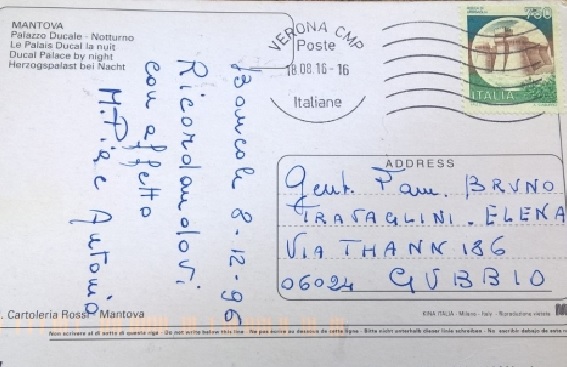 MANTOVA
Palazzo Ducale - Notturno
Le Palais Ducal la nuit
Ducal Palace by night
Herzogspalast bei Nacht
VERONA CMP
Poste
18 08.16-16
Italiane
750
ITALIA
8-12-96
Ricordandovi
con affetto
M. Pia e Antonio
ADDRESS
Gent. Fam. BRUNO
TRAVAGLINI - ELENA
VIA THANN 186
06024 GUBBIO
Cartoleria Rossi - Mantova
KINA ITALIA - Milano - Italy - Riproduzione vietata
Non scrivere al di sotto di questa riga - Do not write below this line - Ne pas écrire au dessous de cette ligne - Bitte nicht unterhalb dieser linie schreiben - No escribir debajo de esta